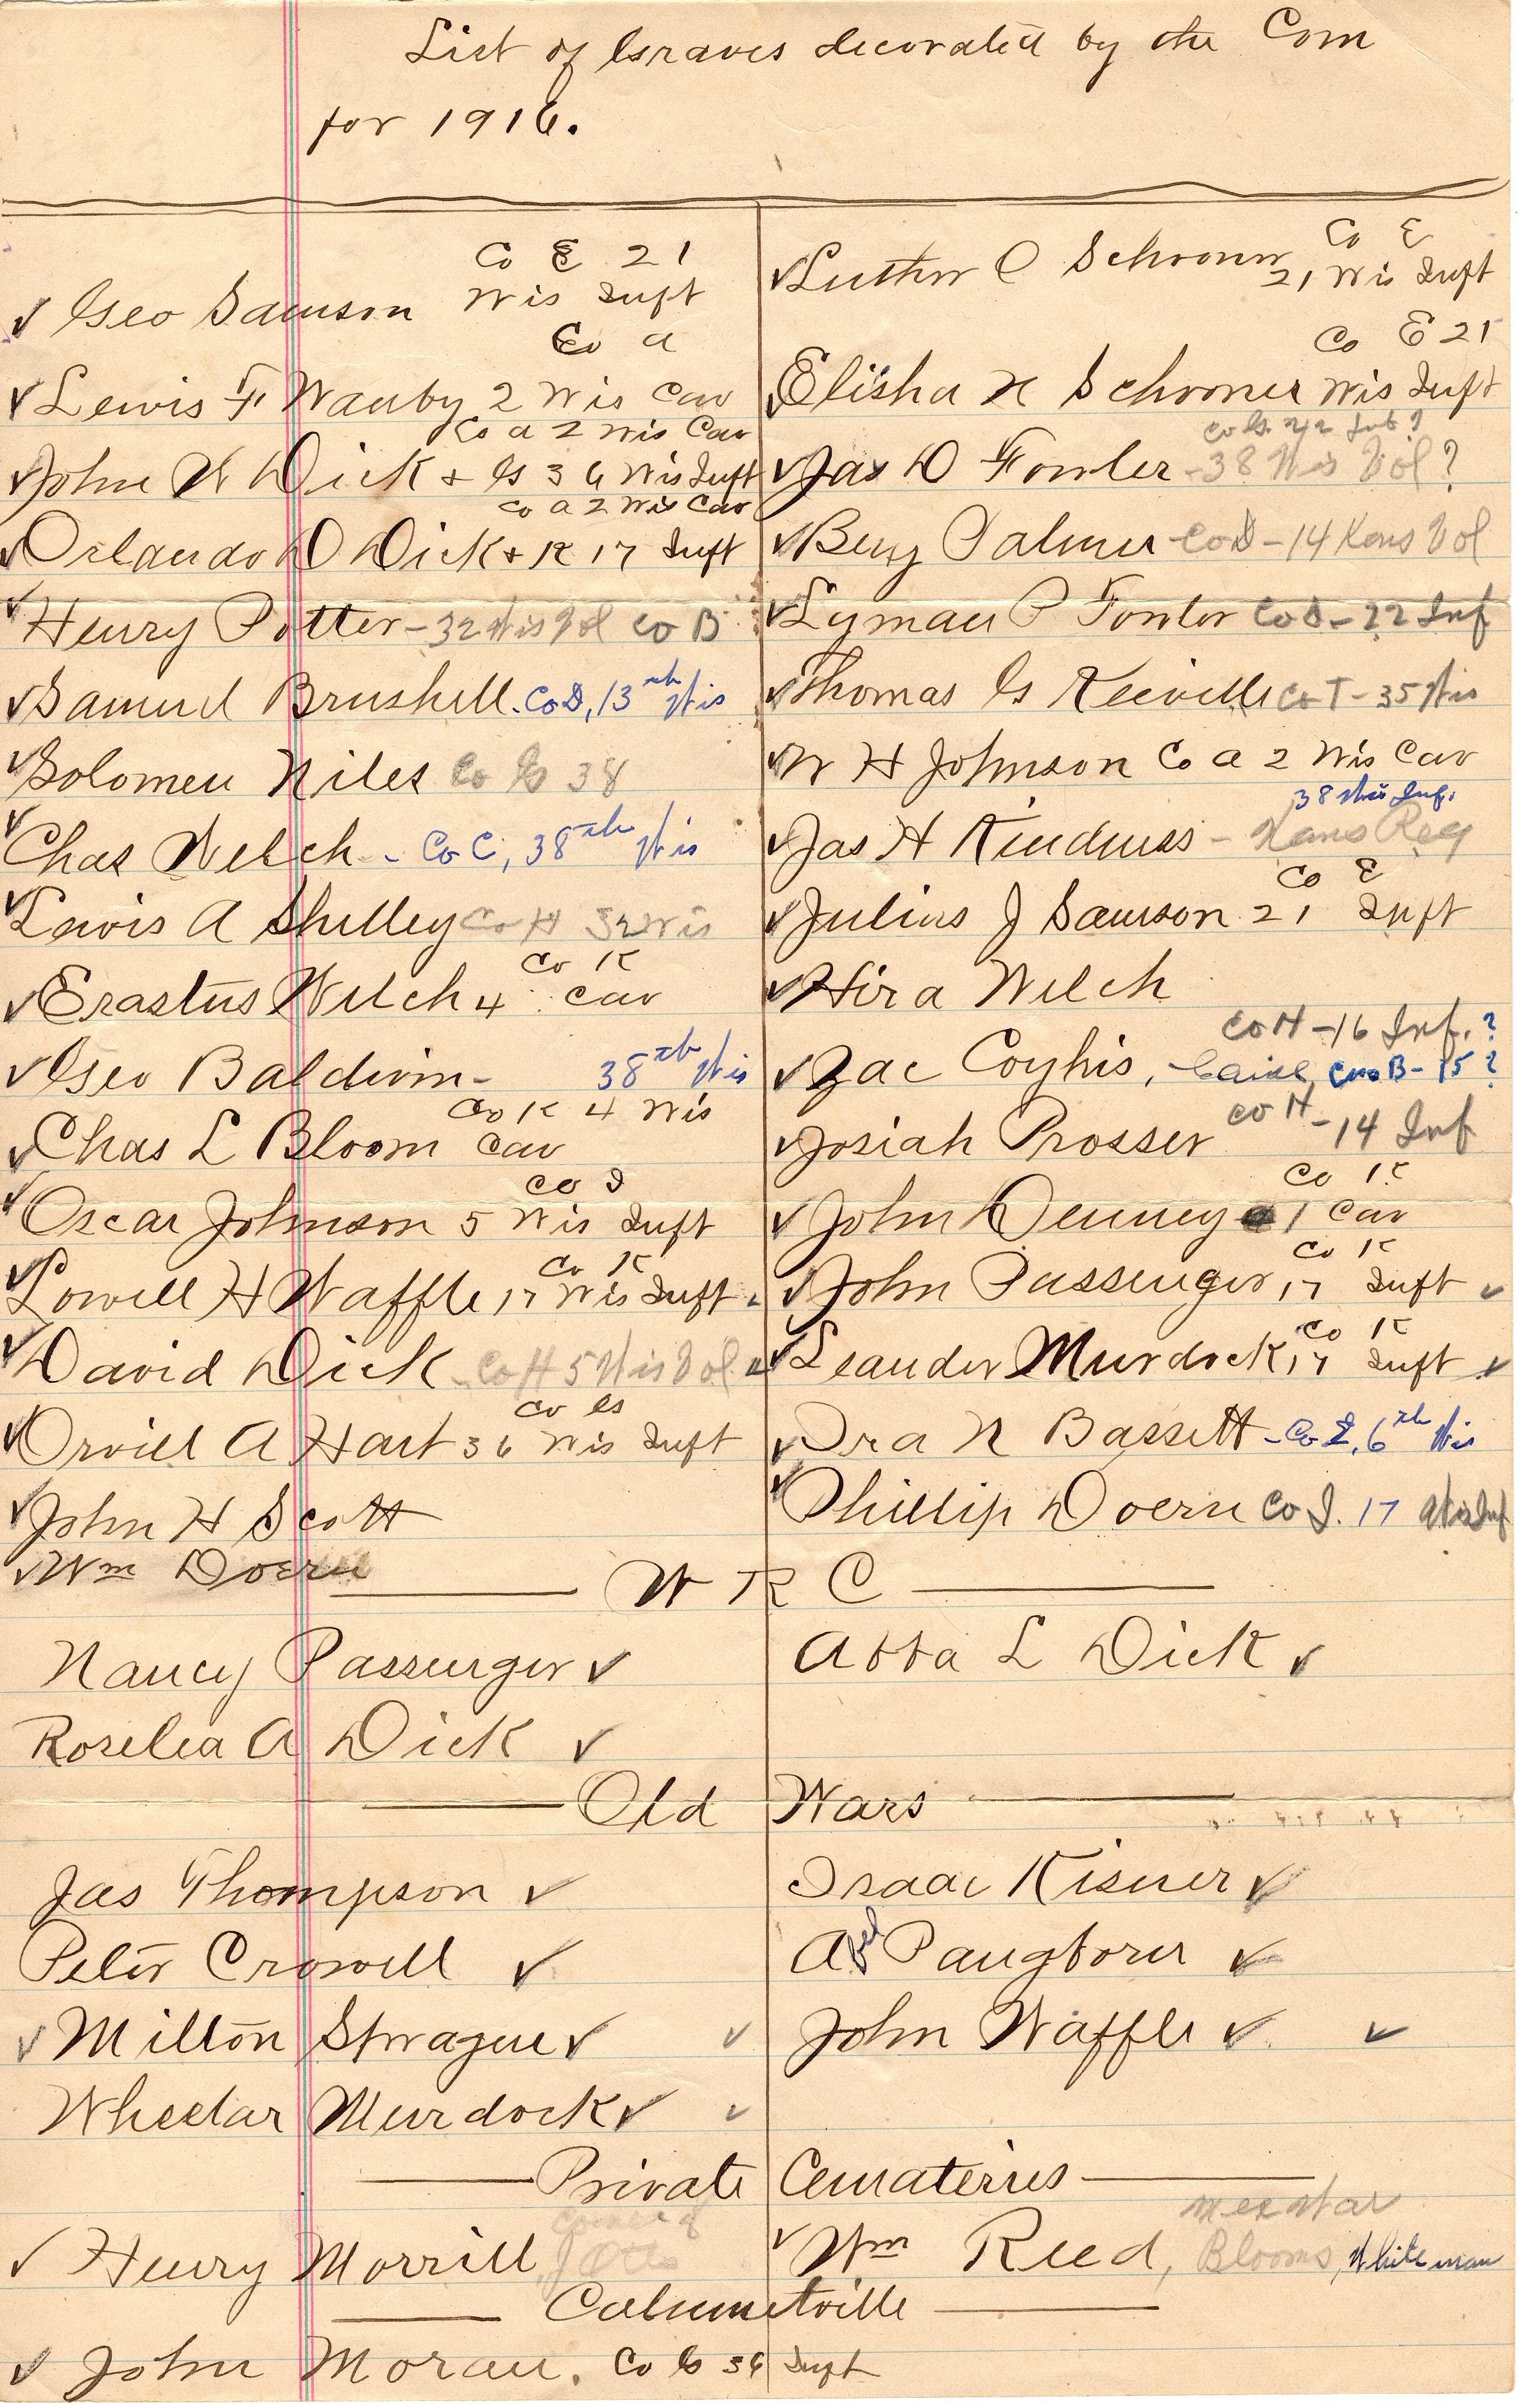 List of Graves decorated by the Com
for 1916.
Co E 21
✓ Geo Samson Wis Inft
Co a
✓ Lewis F Wauby 2 Wis Cav
Co a 2 Wis Cav
✓ John W Dick & G 36 Wis Inft
Co a 2 Wis Cav
✓ Orlando D Dick & K 17 Inft
✓ Henry Potter - 32 Wis Vol Co B
✓ Samuel Brushell. Co D, 13th Wis
✓ Solomen Niles Co G 38
✓ Chas Welch - Co C, 38th Wis
✓ Lewis A Shelley Co H 32 Wis
Co K
✓ Erastus Welch 4 Cav
✓ Geo Baldwin - 38th Wis
Co K 4 Wis
✓ Chas L Bloom Cav
Co I
✓ Oscar Johnson 5 Wis Inft
Co K
✓ Lowell H Waffle 17 Wis Inft ✓
✓ David Dick - Co H 5 Wis Vol
Co G
✓ Orvill A Hart 36 Wis Inft
✓ John H Scott
✓ Wm Doern
Co E
✓ Luther C Schooner 21 Wis Inft
Co E 21
✓ Elisha N Schooner Wis Inft
Co G. 42 Inf ?
✓ Jas D Fowler - 38 Wis Vol ?
✓ Benj Palmer - Co D - 14 Kans Vol
✓ Lyman P Fowler Co D - 22 Inf
✓ Thomas G Co I - 35 Wis
✓ W H Johnson Co a 2 Wis Cav
38 Wis Inf.
✓ Jas H Kindness - Kans Reg
Co E
✓ Julius J Samson 21 Inft
✓ Hira Welch
Co H - 16 Inf. ?
✓ Zac Coyhis, Co B - 15 ?
Co H - 14 Inf
✓ Josiah Prosser
Co K
✓ John Denney 1 Cav
Co K
✓ John Passenger 17 Inft ✓
Co K
✓ Leander Murdock 17 Inft ✓
✓ Ira N Bassett - Co E, 6th Wis
✓ Phillip Doern Co I. 17 Wis Inf
W R C
Nancy Passenger ✓
Roselea A Dick ✓
Abba L Dick ✓
Old Wars
Jas Thompson ✓
Peter Crowell ✓
✓ Milton Sprague ✓ ✓
Wheelar Murdock ✓ ✓
Isaac Kisner ✓
A Pangborn ✓
John Waffle ✓ ✓
Private Cemateries
✓ Henry Morrill
Mex War
✓ Wm Reed, Blooms, White man
Calumetville
✓ John Moran. Co G 36 Inft